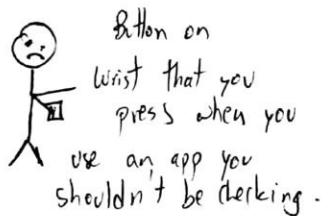 Button on
wrist that you
press when you
use an app you
shouldn't be checking.